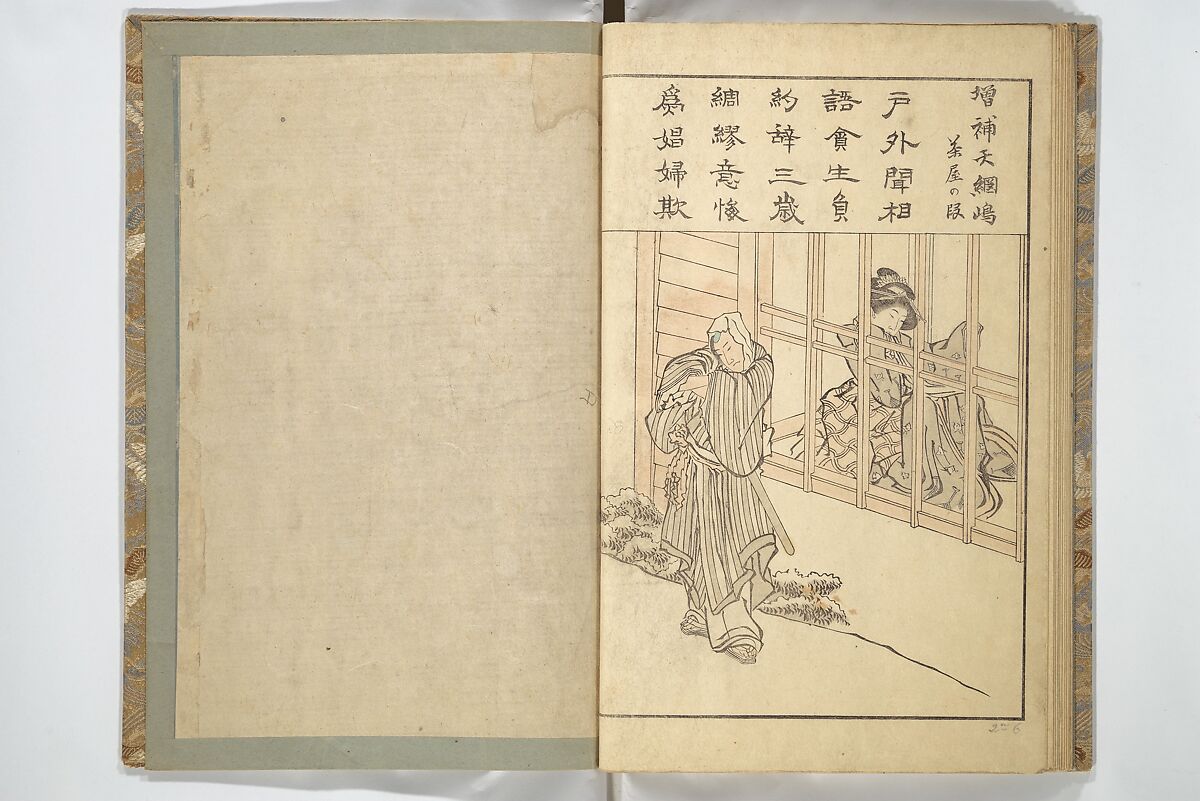 増補天網嶋
茶屋の段
戸外聞相
語貪生負
約辞三歳
綢繆意悔
為娼婦欺
2 6